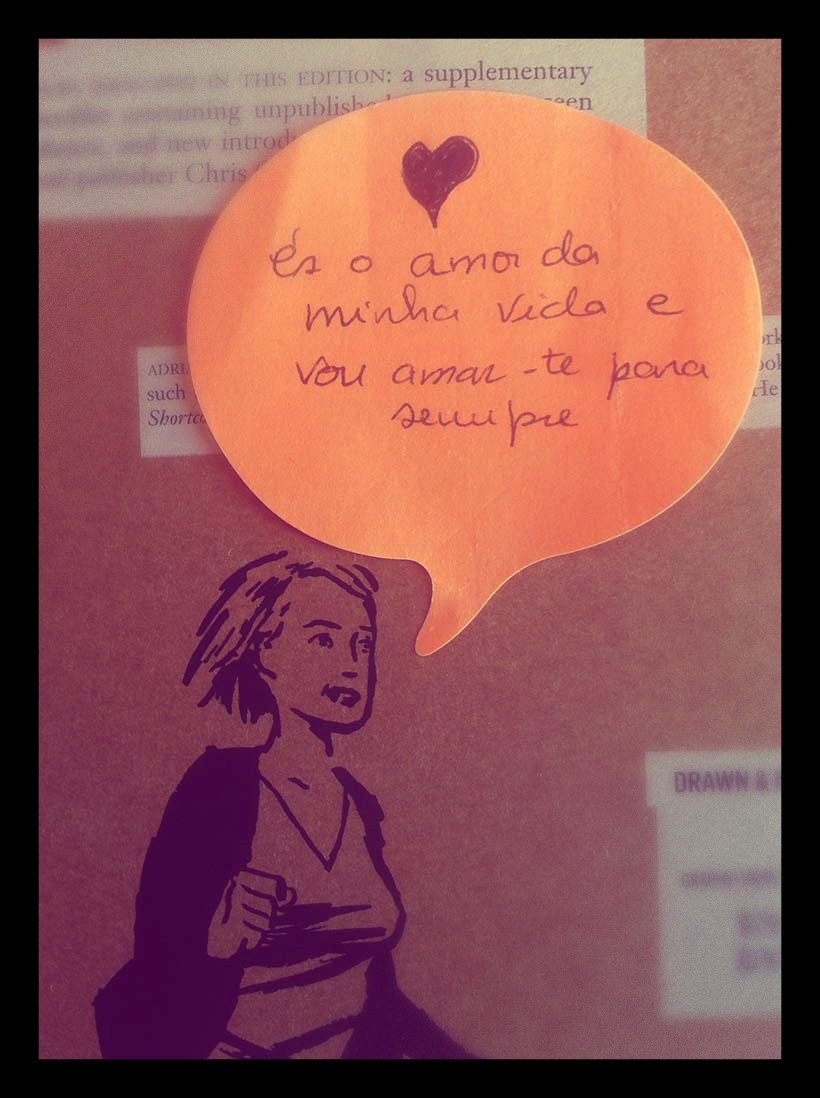 IN THIS EDITION: a supplementary
containing unpublished
and new introd
publisher Chris
és o amor da
minha vida e
vou amar-te para
sempre
ADRI
such
Shortco
ork
ook
He
DRAWN &